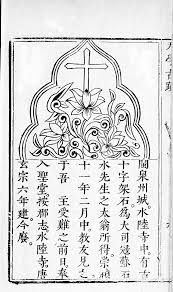 閩泉州城水陸寺中有古
十字架石爲大司寇蘇石
水先生之太翁所得崇禎
十一年二月中教友見之
于吾 主受難之前日奉
入聖堂按郡志水陸寺唐
玄宗六年建今廢